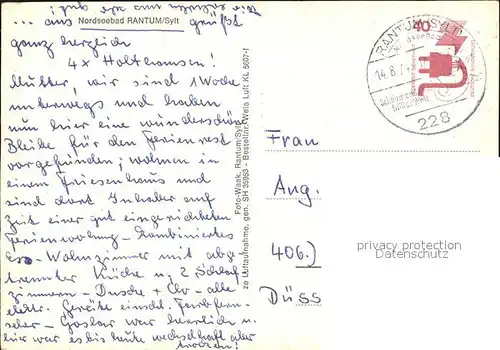 ... aus Nordseebad RANTUM/Sylt grüßt
ganz herzlich
4x Holthausen!
Mutter, wir sind 1 Woche
unterwegs und haben
nun hier eine wunderschöne
Bleibe für den Ferienrest
vorgefunden; wohnen in
einem Friesenhaus und
sind dort Inhaber auf
Zeit einer gut eingerichteten
Ferienwohnung - Kombiniertes
Ess-Wohnzimmer mit abge-
trennter Küche u. 2 Schlaf-
zimmern - Dusche + Clo - alle
elektr. Geräte einschl. Farbfern-
seher - Goslar war herrlich u.
hier war es bis heute wechselhaft aber
trocken!
Foto-Wank, Rantum/Sylt
ze Luftaufnahme, gen. SH 35953 - Bestellnr. Wela Luft KL 5607-f
RANTUM/SYLT
40
14.8.7
228
Frau
Aug.
406.)
Düss
privacy protection
Datenschutz